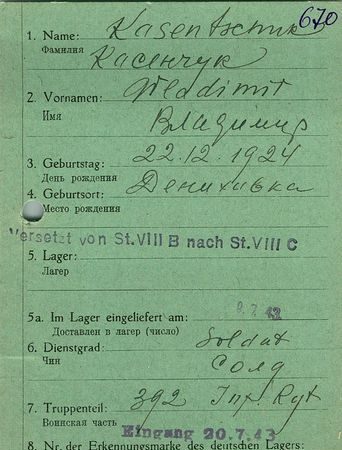 670
1. Name: Kasentschuk
Фамилия Касенчук
2. Vornamen: Wladimir
Имя Владимир
3. Geburtstag: 22.12.1924
День рождения
4. Geburtsort: Дениховка
Место рождения
Versetzt von St. VIII B nach St. VIII C
5. Lager:
Лагер
5a. Im Lager eingeliefert am:
Доставлен в лагер (число)
6. Dienstgrad: Soldat
Чин Солд
7. Truppenteil: 392 Inf. Rgt
Воинская часть
Eingang 20.7.43
8. Nr. der Erkennungsmarke des deutschen Lagers: